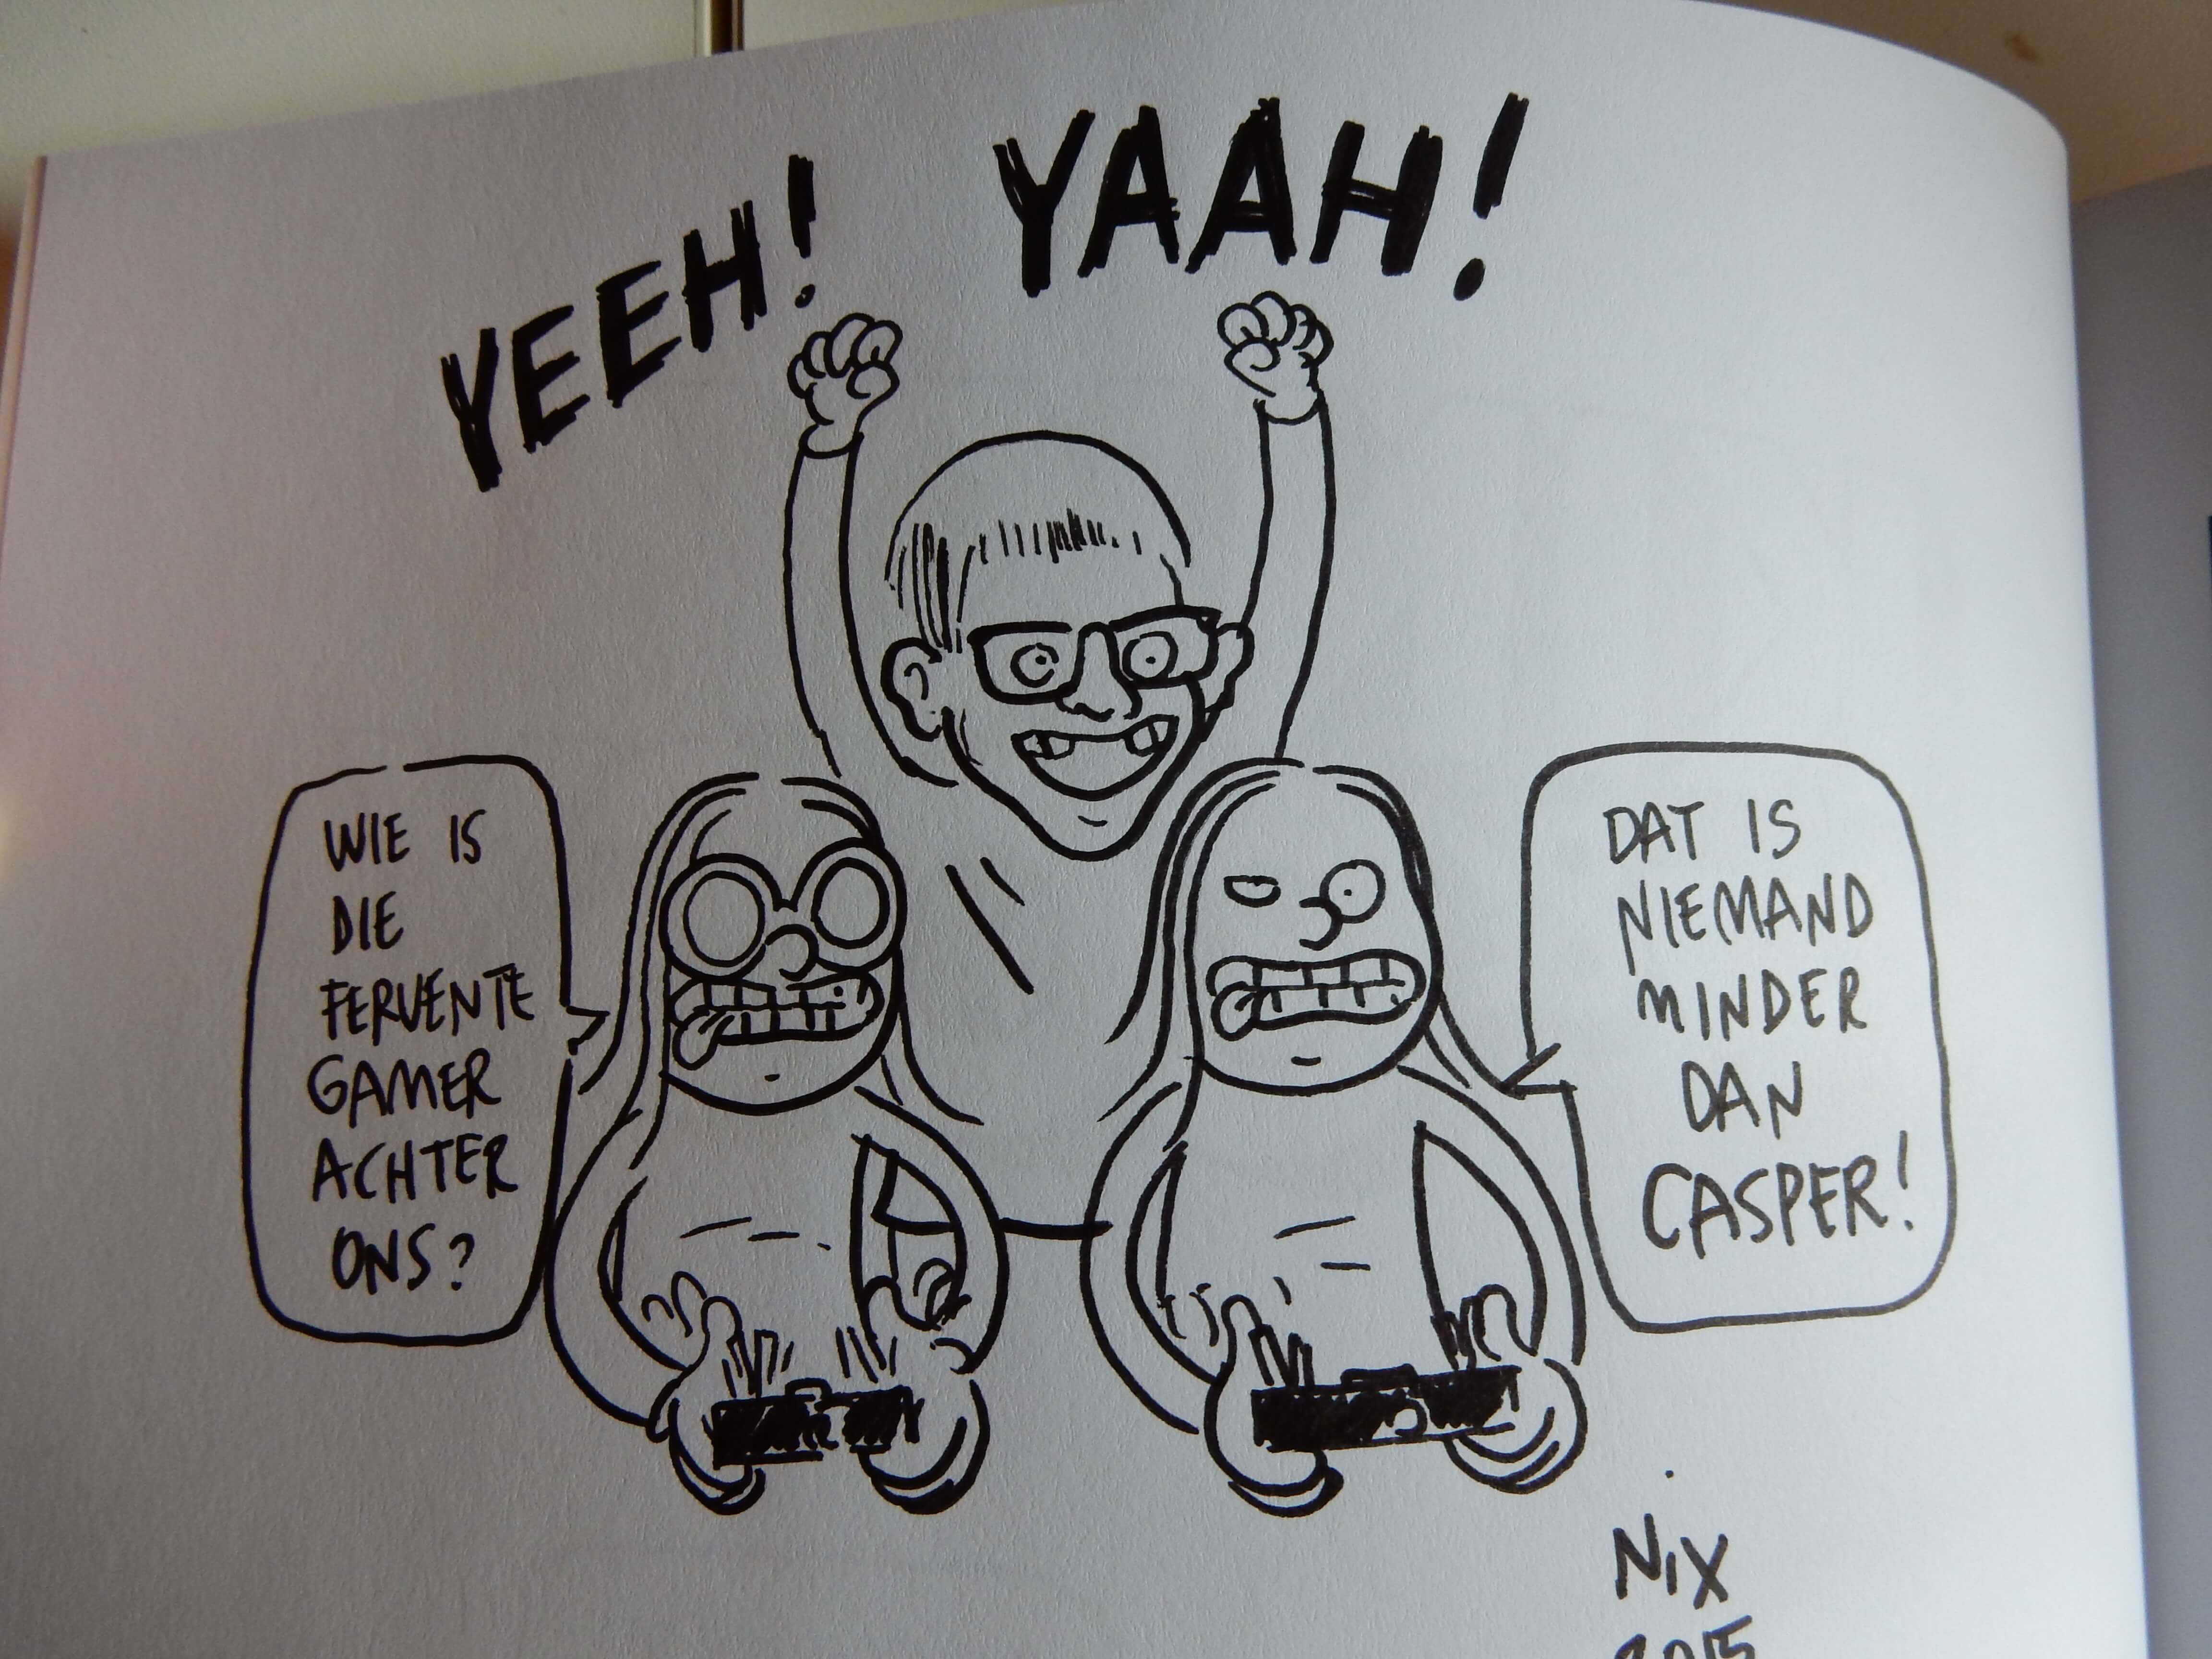 YEEH! YAAH!
WIE IS
DIE
FERVENTE
GAMER
ACHTER
ONS?
DAT IS
NIEMAND
MINDER
DAN
CASPER!
NIX
2015